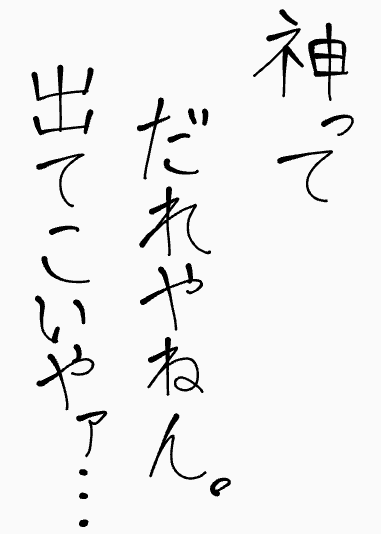 神って
だれやねん。
出てこいやァ…